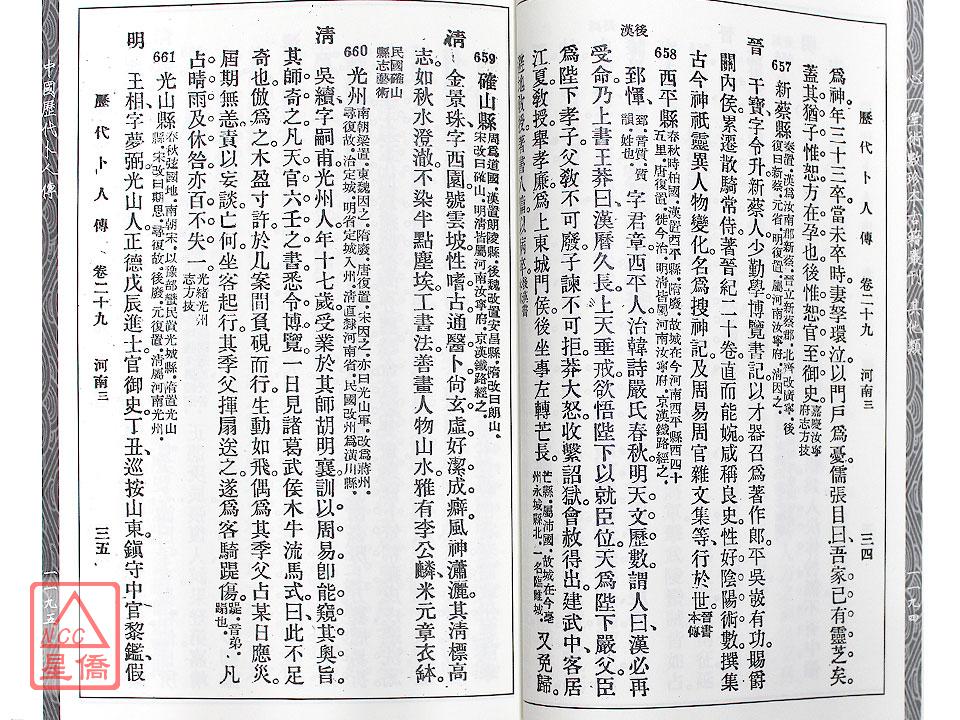 歷代卜人傳 卷二十九 河南三 三四
為神。年二十三卒。當未卒時。妻孥環泣。以門戶為憂。儒張目曰。吾家已有靈芝矣。
蓋其猶子惟恕方在孕也。後惟恕官至御史。嘉慶汝寧府志方技
657 新蔡縣
晉 干寶。字令升。新蔡人。少勤學。博覽書記。以才器召為著作郎。平吳嵌有功。賜爵
關內侯。累遷散騎常侍。著晉紀二十卷。直而能婉。咸稱良史。性好陰陽術數。撰集
古今神祇靈異人物變化。名為搜神記。及周易周官雜文集等。行於世。晉書本傳
658 西平縣 春秋時柏國。漢置西平縣。隋廢。故城在今河南西平縣西四十五里。唐復置。徙今治。明清皆屬河南汝寧府。京漢鐵路經之。
後漢 郅惲。郅音質。惲姓也。字君章。西平人。治韓詩。嚴氏春秋。明天文歷數。謂人曰。漢必再
受命。乃上書王莽曰。漢曆久長。上天垂戒。欲悟陛下以就臣位。天為陛下嚴父。臣
為陛下孝子。父教不可廢。子諫不可拒。莽大怒。收繫詔獄。會赦得出。建武中。客居
江夏教授。舉孝廉。為上東城門侯。後坐事。左轉芒長。芒縣。屬沛國。故城在今亳州永城縣北。一名臨睢城。又免歸。
659 確山縣 周為道國。漢置朗陵縣。後魏改置安昌縣。隋改曰朗山。宋改曰確山。明清皆屬河南汝寧府。京漢鐵路經之。
清 金景珠。字西園。號雲坡。性嗜古。通醫卜。尙玄虛。好潔成癖。風神瀟灑。其清標高
志。如秋水澄澈。不染半點塵埃。工書法。善畫人物山水。雅有李公麟。米元章衣鉢。
民國確山縣志藝術
660 光州 南朝梁置。東魏因之。隋廢。唐復置。宋因之。亦曰光山軍。改為蔣州。尋復故。治定城。明省定城入州。清直隸河南省。民國改州為潢川縣。
清 吳續。字嗣甫。光州人。年十七歲。受業於其師胡明襄。訓以周易。卽能窺其奧旨。
其師奇之。凡天官六壬之書。悉令博覽。一日見諸葛武侯木牛流馬式曰。此不足
奇也。倣為之。木盈寸許。於几案間。負硯而行。生動如飛。偶為其季父占某日應災。
屆期無恙。責以妄談亡何。坐客起行。其季父揮扇送之。遂為客騎踶傷。踶。音弟。蹋也。凡
占晴雨及休咎。亦百不失一。光緒光州志方技
661 光山縣 春秋弦國地。南朝宋。以豫部蠻民資光城縣。隋置光山縣。宋改曰期思。尋復故。後廢。元復置。清屬河南光州。
明 王相。字夢弼。光山人。正德戊辰進士。官御史。丁丑巡按山東。鎮守中官黎鑑假
歷代卜人傳 卷二十九 河南三 三五
中國歷代卜人傳
一一九五
一一九四
NCC
星僑